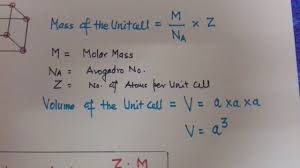 Mass of the Unit Cell = M/N_A × Z
M = Molar Mass
N_A = Avogadro No.
Z = No. of Atoms per Unit Cell
Volume of the Unit Cell = V = a x a x a
V = a³
Z · M